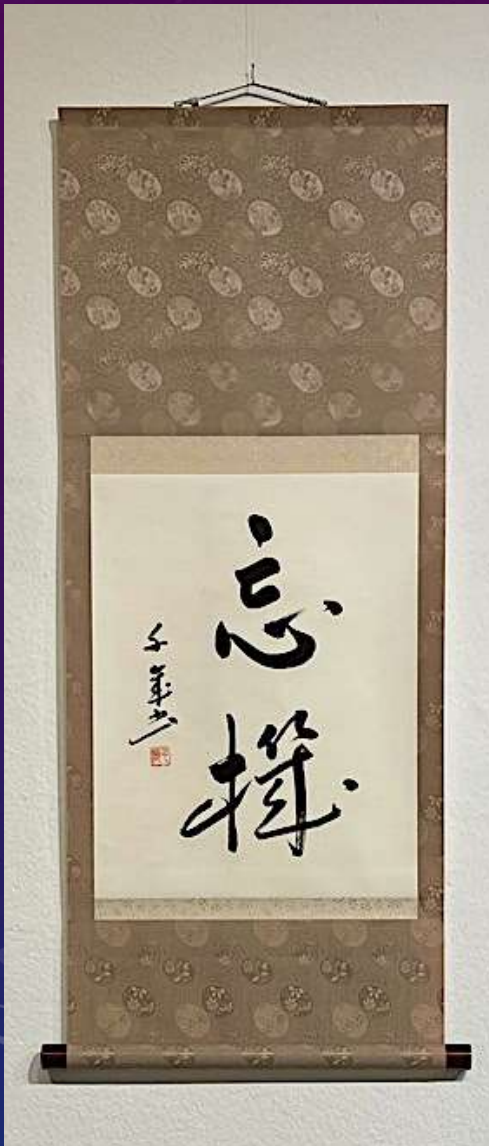 忘機
千華書